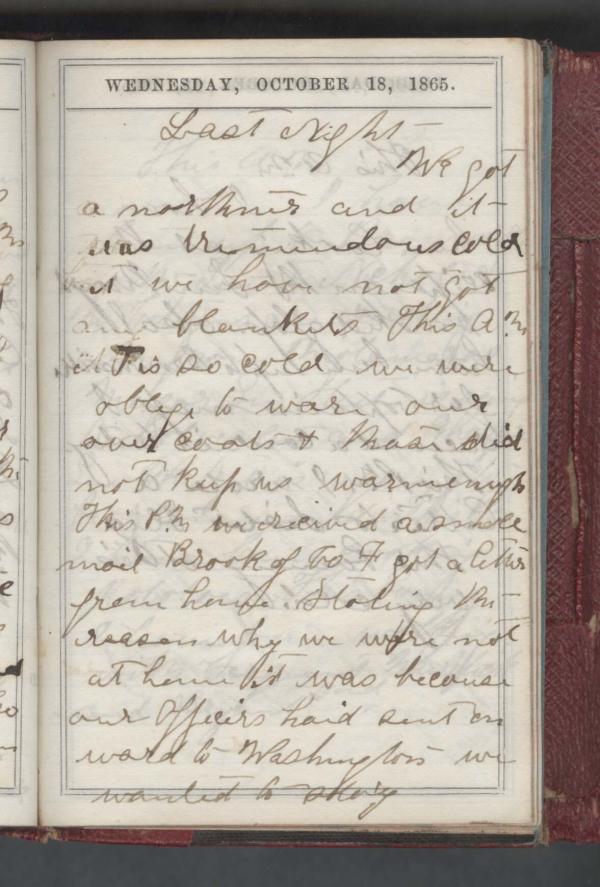 WEDNESDAY, OCTOBER 18, 1865.
Last Night
We got
a northner and it
was tremendous cold
but we have not got
any blankets This A M
it is so cold we were
oblige to ware our
over coats & those did
not kep us warm enough
This P.M we received a smole
mail Brook of Co F got a letter
from home. Stating the
reason why we were not
at home it was because
our Officers haid sent on
ward to Washington we
wanted to stay